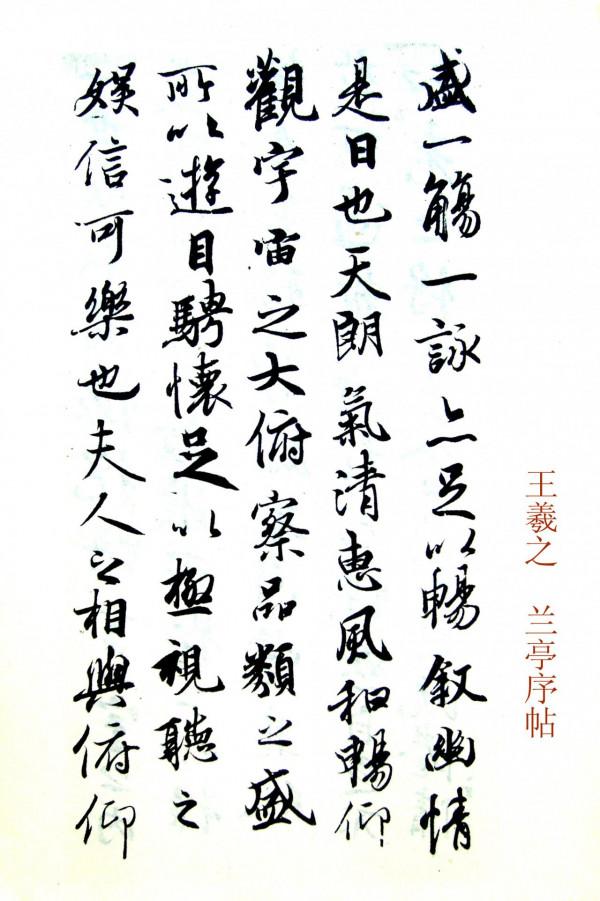 王羲之 兰亭序帖
盛一觴一詠亦足以暢叙幽情
是日也天朗氣清惠風和暢仰
觀宇宙之大俯察品類之盛
所以遊目騁懷足以極視聽之
娛信可樂也夫人之相與俯仰